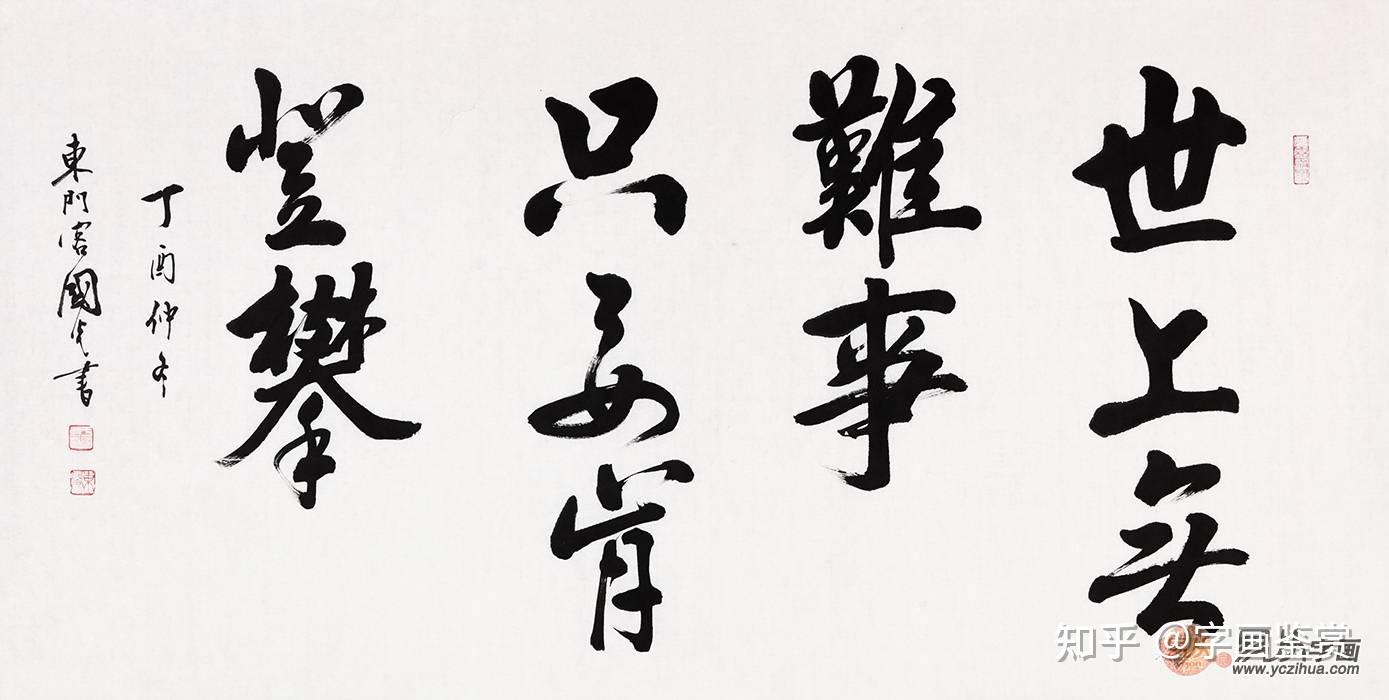 世上無
難事
只要肯
登攀
丁酉仲冬
東門客國光書
知乎 @字画鉴赏
www.yczihua.com